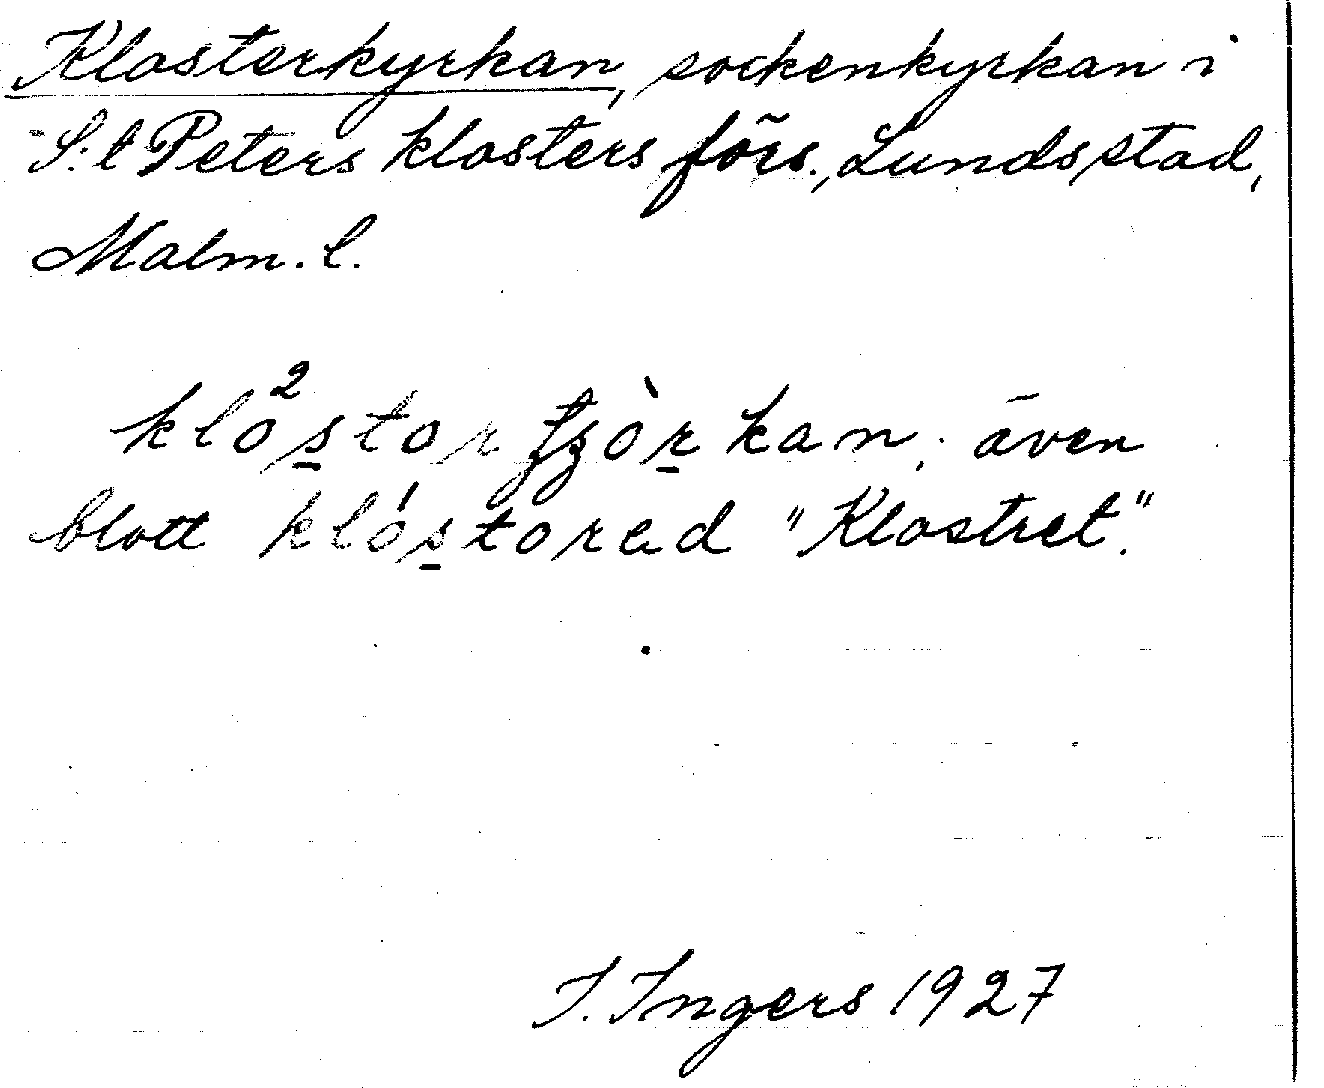 Klosterkyrkan, sockenkyrkan i
S:t Peters klosters förs., Lunds stad,
Malm. l.
klo²stor tjòr kan; även
blott klóstored "Klostret".
I. Ingers 1927